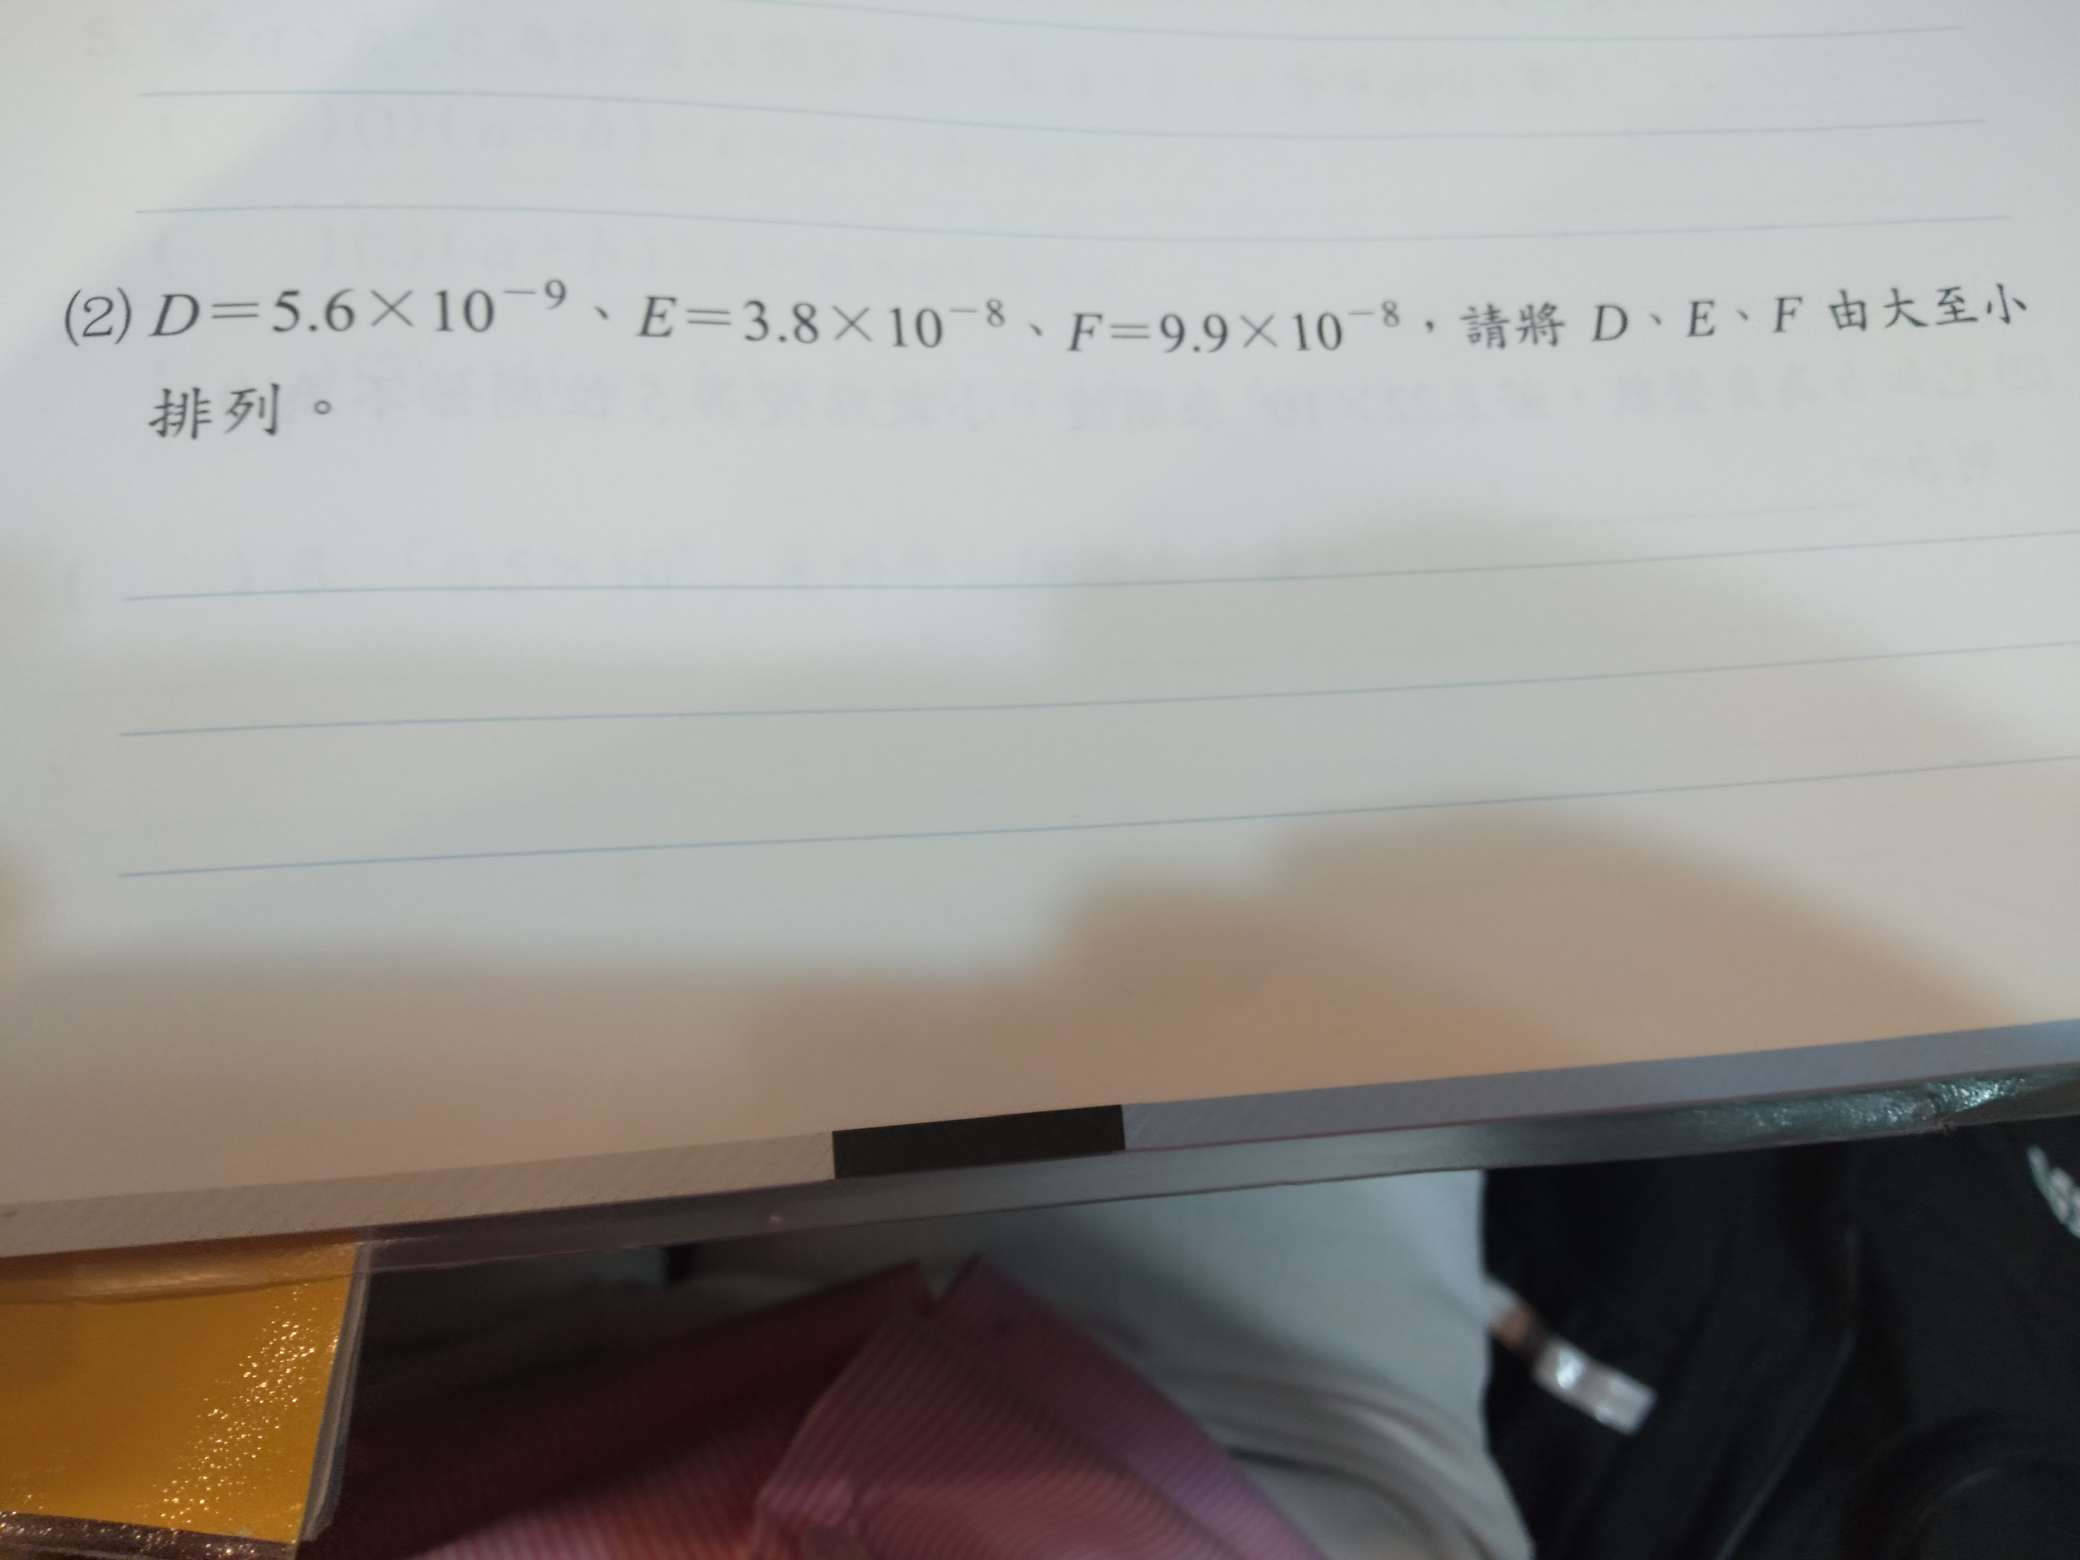 (2) D＝5.6×10⁻⁹、E＝3.8×10⁻⁸、F＝9.9×10⁻⁸，請將 D、E、F 由大至小
排列。